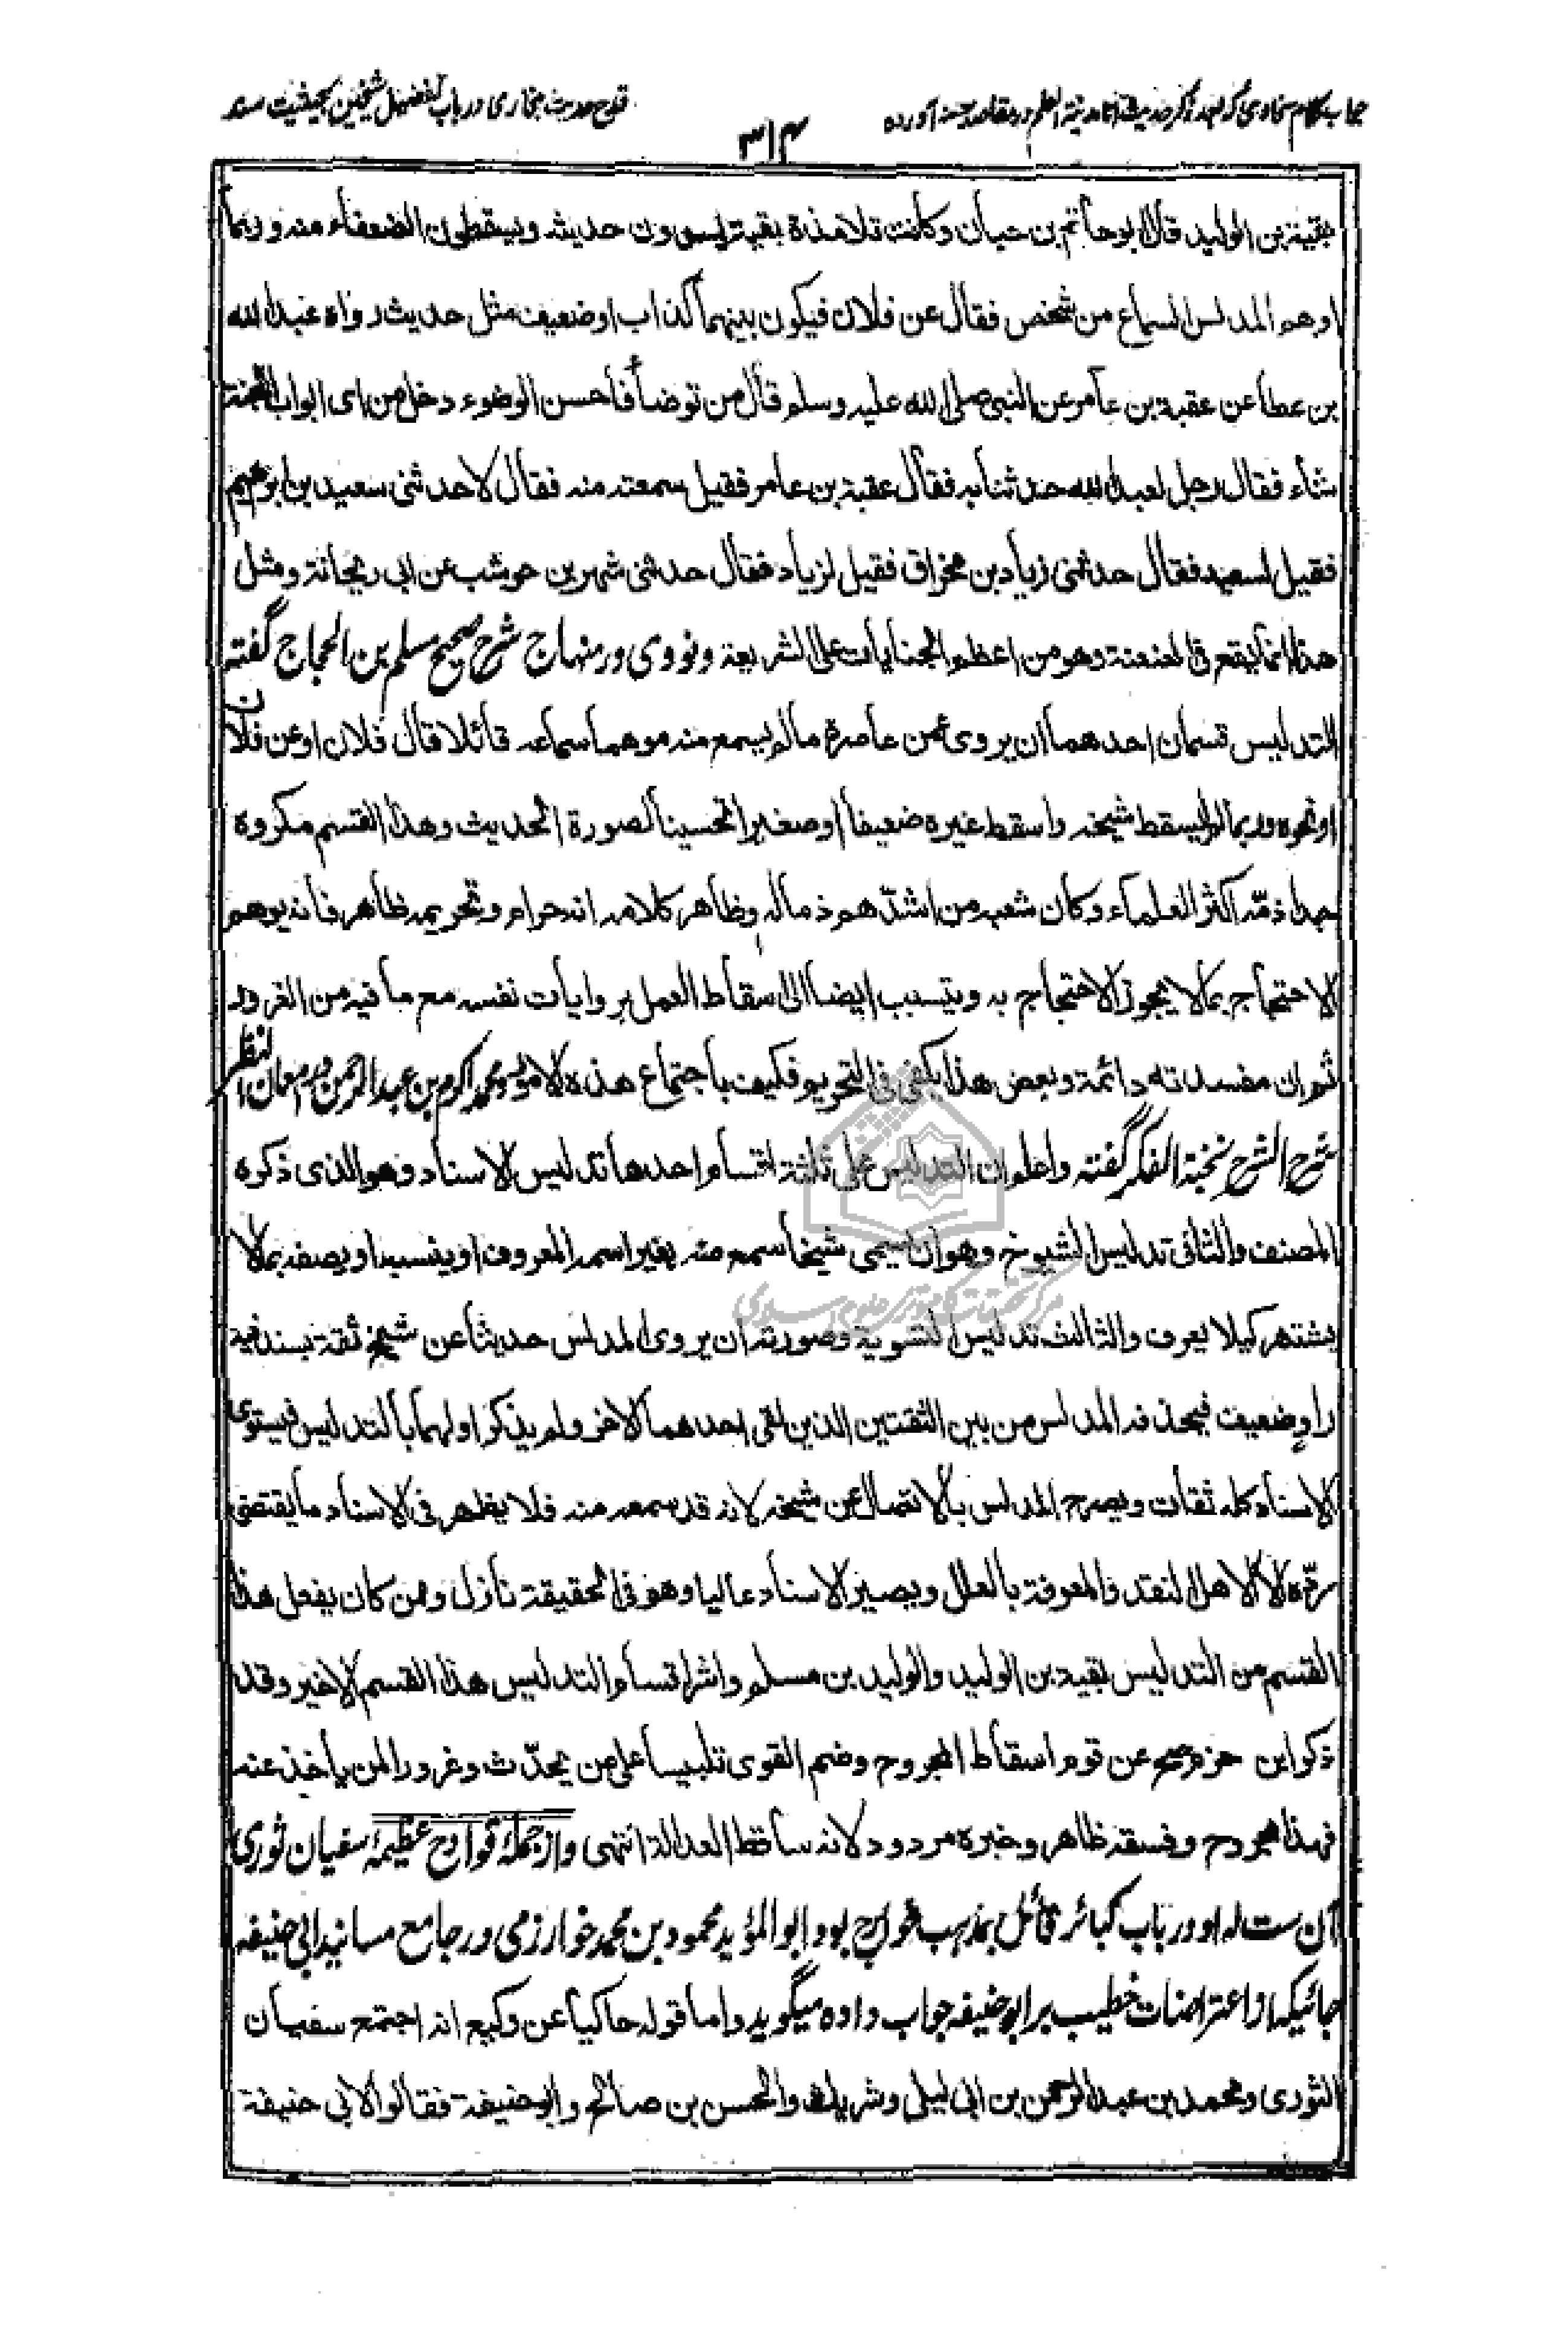 جواب کلام سخاوی که بعد ذکر حدیث انا مدینة العلم در مقاصد حسنه آورده
۳۱۴
قدح حدیث بخاری در باب تفضیل شیخین بحیثیت سند
بقیة بن الولید قال ابو حاتم بن حبان وکانت تلامذة بقیة یسوون حدیثه ویسقطون الضعفاء منه وربما
اوهم المدلس السماع من شخص فقال عن فلان فیکون بینهما کذاب اوضعیف مثل حدیث رواه عبد الله
بن عطا عن عقبة بن عامر عن النبی صلی الله علیه وسلم قال من توضأ فاحسن الوضوء دخل من ای ابواب الجنة
شاء فقال رجل لعبد الله حدثنا به فقال عقبة بن عامر فقیل سمعته منه فقال لا حدثنی سعید بن ابراهیم
فقیل لسعید فقال حدثنی زیاد بن مخراق فقیل لزیاد فقال حدثنی شهر بن حوشب عن ابی ریحانة ومثل
هذا انما یقع فی العنعنة وهو من اعظم الجنایات علی الشریعة ونووی در منهاج شرح صحیح مسلم بن الحجاج گفته
التدلیس قسمان احدهما ان یروی عمن عاصره مالم یسمع منه موهما سماعه قائلا قال فلان اوعن فلان
اونحوه وربما لم یسقط شیخه واسقط غیره ضعیفا اوصغیرا تحسینا لصورة الحدیث وهذا القسم مکروه
جدا ذمّه اکثر العلماء وکان شعبه من اشدّهم ذما له وظاهر کلامه انه حرام وتحریمه ظاهر فانه یوهم
الاحتجاج بما لا یجوز الاحتجاج به ویتسبب ایضا الی اسقاط العمل بروایات نفسه مع ما فیه من الغرور
ثم ان مفسدته دائمة وبعض هذا یکفی فی التحریم فکیف باجتماع هذه الامور ومحمد اکرم بن عبد الرحمن در امعان النظر
شرح الشرح نخبة الفکر گفته واعلم ان التدلیس علی ثلثة اقسام احدها تدلیس الاسناد وهو الذی ذکره
المصنف والثانی تدلیس الشیوخ وهو ان یسمی شیخا سمع منه بغیر اسمه المعروف اوینسبه اویصفه بما لا
یشتهر کیلا یعرف والثالث تدلیس التسویة وصورته ان یروی المدلس حدیثا عن شیخ ثقة بسند فیه
راوٍ ضعیف فیحذفه المدلس من بین الثقتین الذین لقی احدهما الاخر ولم یذکر اولهما بالتدلیس فیستوی
الاسناد کله ثقات ویصرح المدلس بالاتصال عن شیخه لانه قد سمعه منه فلا یظهر فی الاسناد ما یقتضی
ردّه الا لاهل النقد والمعرفة بالعلل ویصیر الاسناد عالیا وهو فی الحقیقة نازل وممن کان یفعل هذا
القسم من التدلیس بقیة بن الولید والولید بن مسلم واشر اقسام التدلیس هذا القسم الاخیر وقد
ذکر ابن حزم صح عن قوم اسقاط المجروح وضم القوی تلبیسا علی من یحدّث وغرورا لمن یأخذ عنه
فهذا مجروح وفسقه ظاهر وخبره مردود لانه ساقط العدالة انتهی واز جملهٔ قوادح عظیمهٔ سفیان ثوری
آن ست که او در باب کبائر قائل بمذهب خوارج بود ابو المؤید محمود بن محمد خوارزمی در جامع مسانید ابی حنیفه
جائیکه از اعتراضات خطیب بر ابو حنیفه جواب داده میگوید واما قوله حاکیا عن وکیع انه اجتمع سفیان
الثوری ومحمد بن عبد الرحمن بن ابی لیلی وشریک والحسن بن صالح وابو حنیفة فقالوا لابی حنیفة